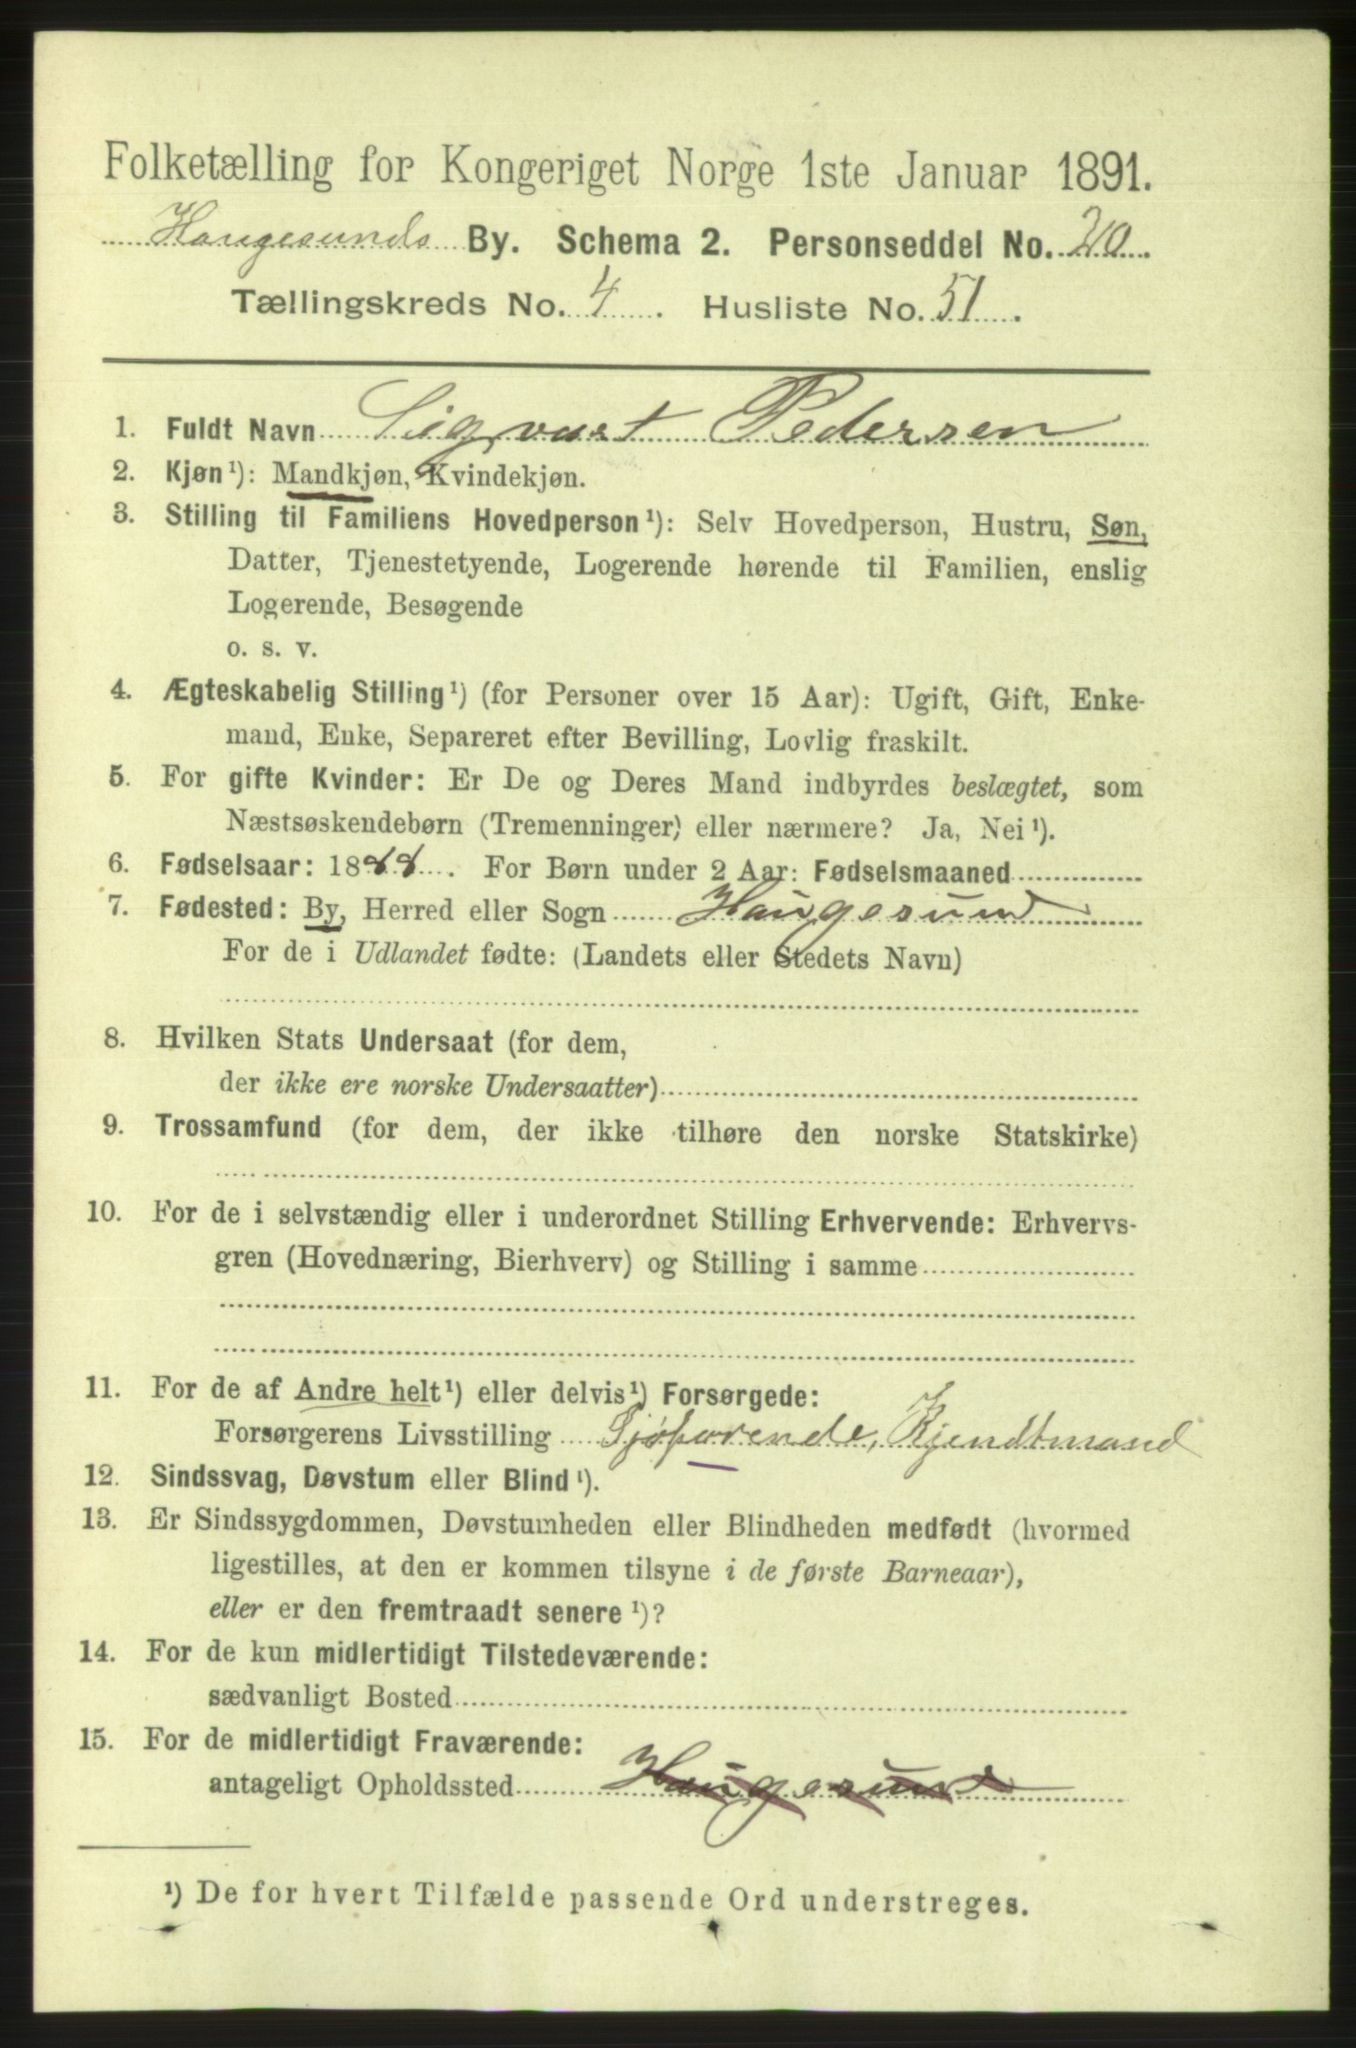 Folketælling for Kongeriget Norge 1ste Januar 1891.
Haugesunds By. Schema 2. Personseddel No. 20.
Tællingskreds No. 4. Husliste No. 51.
1. Fuldt Navn Sigvart Pedersen
2. Kjøn ¹): Mandkjøn, Kvindekjøn.
3. Stilling til Familiens Hovedperson ¹): Selv Hovedperson, Hustru, Søn,
Datter, Tjenestetyende, Logerende hørende til Familien, enslig
Logerende, Besøgende
o. s. v.
4. Ægteskabelig Stilling ¹) (for Personer over 15 Aar): Ugift, Gift, Enke-
mand, Enke, Separeret efter Bevilling, Lovlig fraskilt.
5. For gifte Kvinder: Er De og Deres Mand indbyrdes beslægtet, som
Næstsøskendebørn (Tremenninger) eller nærmere? Ja, Nei ¹).
6. Fødselsaar: 1888. For Børn under 2 Aar: Fødselsmaaned
7. Fødested: By, Herred eller Sogn Haugesund
For de i Udlandet fødte: (Landets eller Stedets Navn)
8. Hvilken Stats Undersaat (for dem,
der ikke ere norske Undersaatter)
9. Trossamfund (for dem, der ikke tilhøre den norske Statskirke)
10. For de i selvstændig eller i underordnet Stilling Erhvervende: Erhvervs-
gren (Hovednæring, Bierhverv) og Stilling i samme
11. For de af Andre helt ¹) eller delvis ¹) Forsørgede:
Forsørgerens Livsstilling Sjøfarende, Kjendtmand
12. Sindssvag, Døvstum eller Blind ¹).
13. Er Sindssygdommen, Døvstumheden eller Blindheden medfødt (hvormed
ligestilles, at den er kommen tilsyne i de første Barneaar),
eller er den fremtraadt senere ¹)?
14. For de kun midlertidigt Tilstedeværende:
sædvanligt Bosted
15. For de midlertidigt Fraværende:
antageligt Opholdssted Haugesund
¹) De for hvert Tilfælde passende Ord understreges.